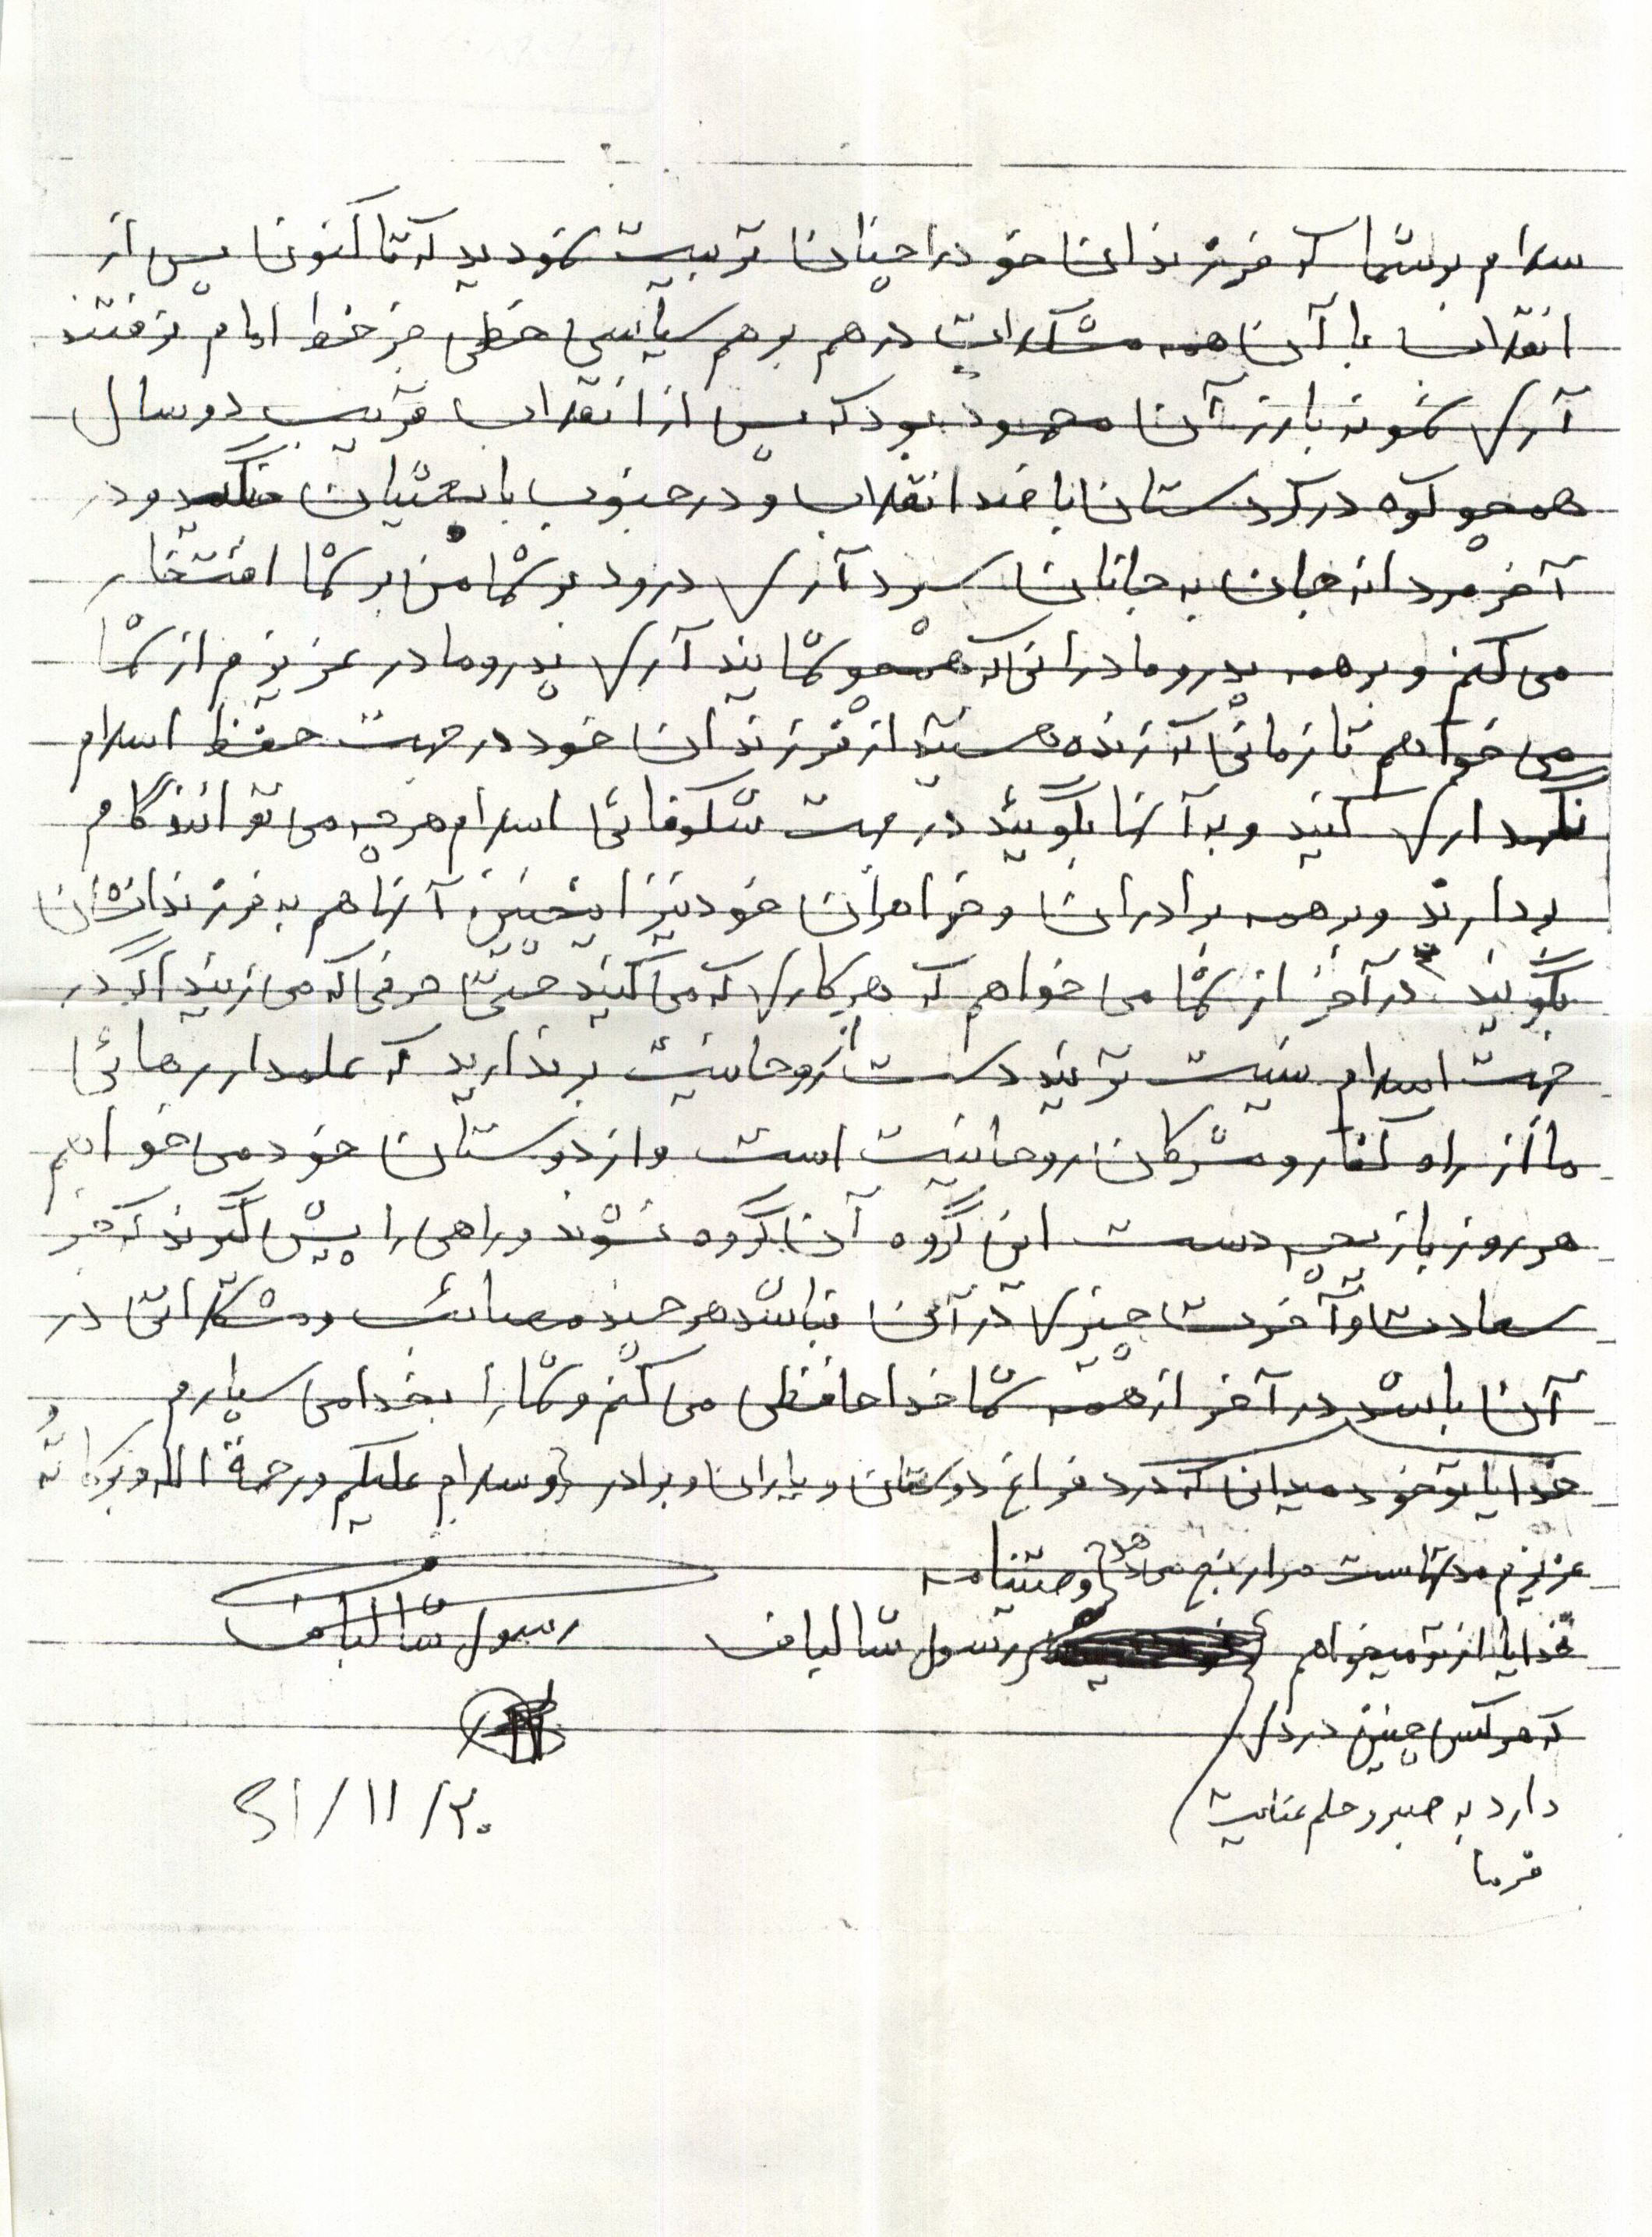 سلام بر شما که فرزندان خود را چنان تربیت نمودید که تا کنون پس از
انقلاب با آن همه مشکلات درهم برهم سیاسی خطی جز خط امام نرفتند
آری نمونه بارز آن محمود بود که پس از انقلاب قریب دو سال
همچو کوه در کردستان با ضد انقلاب و در جنوب با بعثیان جنگید و در
آخر مردانه جان به جانان سپرد آری درود بر شما من بر شما افتخار
می کنم و بر همه پدر و مادرانی که همچو شمایند آری پدر و مادر عزیزم از شما
می خواهم تا زمانی که زنده هستید از فرزندان خود در جهت حفظ اسلام
نگهداری کنید و به آنها بگوئید در جهت شکوفائی اسلام هر چه می توانند گام
بردارند و بر همه برادران و خواهران خود نیز اینچنین آنها هم به فرزندانشان
بگویند در آخر از شما می خواهم که هر کاری که می کنید حتی حرفی که می زنید اگر در
جهت اسلام نیست نزنید دست از روحانیت برندارید که علمدار رهائی
ما از راه کفار و مشرکان روحانیت است و از دوستان خود می خواهم
هر روز بازیچه دست این گروه آن گروه نشوند و راهی را پیش گیرند که جز
سعادت و آخرت چیزی در آن نباشد هر چند مصائب و مشکلاتی در
آن باشد در آخر از همه شما خداحافظی می کنم و شما را بخدا می سپارم
خدایا تو خود میدانی که درد فراغ دوستان و یاران و برادر و سلام علیکم و رحمة الله و برکاته
عزیزم مدتهاست مرا رنج می دهد وصیتنامه
خدایا از تو میخواهم رسول شالباف رسول شالباف
که هر کس چنین دردی
دارد به صبر و حلم عنایت
فرما
۶۱/۱۱/۲۰